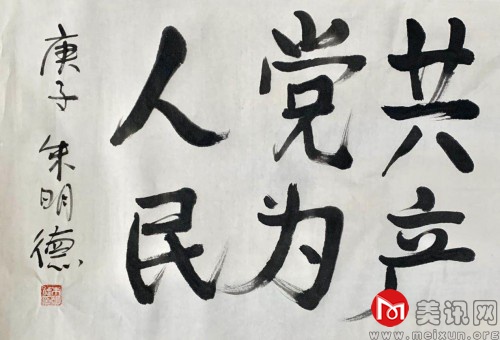 共产
党为
人民
庚子 朱明德
美讯网
www.meixun.org